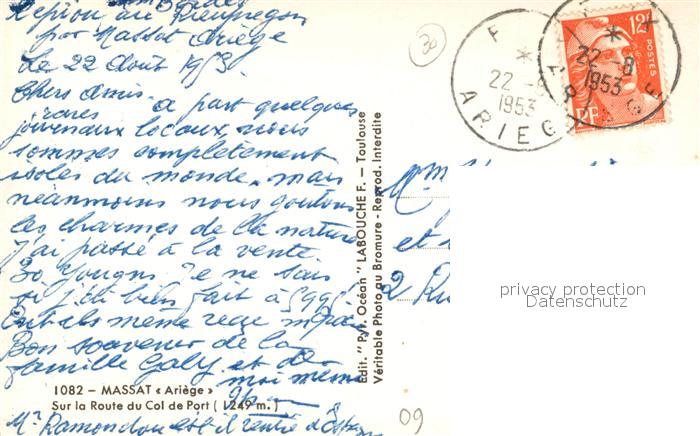 au Rieupregon
par Massat Ariège
Le 22 Août 1953
Chers Amis
a part quelques
rares
journaux locaux, nous
sommes complètement
isolés du monde, mais
néanmoins nous goutons
les charmes de la nature
J'ai passé à la vente
30 Yougns Je ne sais
si j'ai bien fait à 5995.
même reçu
Bon souvenir de la
famille Galy et de
moi même
1082 – MASSAT « Ariège »
Sur la Route du Col de Port ( 1249 m. )
Mr Ramondou est il rentré
Edit. " Pyr. Océan " LABOUCHE F. — Toulouse
Véritable Photo au Bromure - Reprod. Interdite
30
F *
22 - 8
1953
ARIEG
*
22 - 8
1953
ARIEGE
12F
POSTES
RF
Mm
et
2 Ru
privacy protection
Datenschutz
09